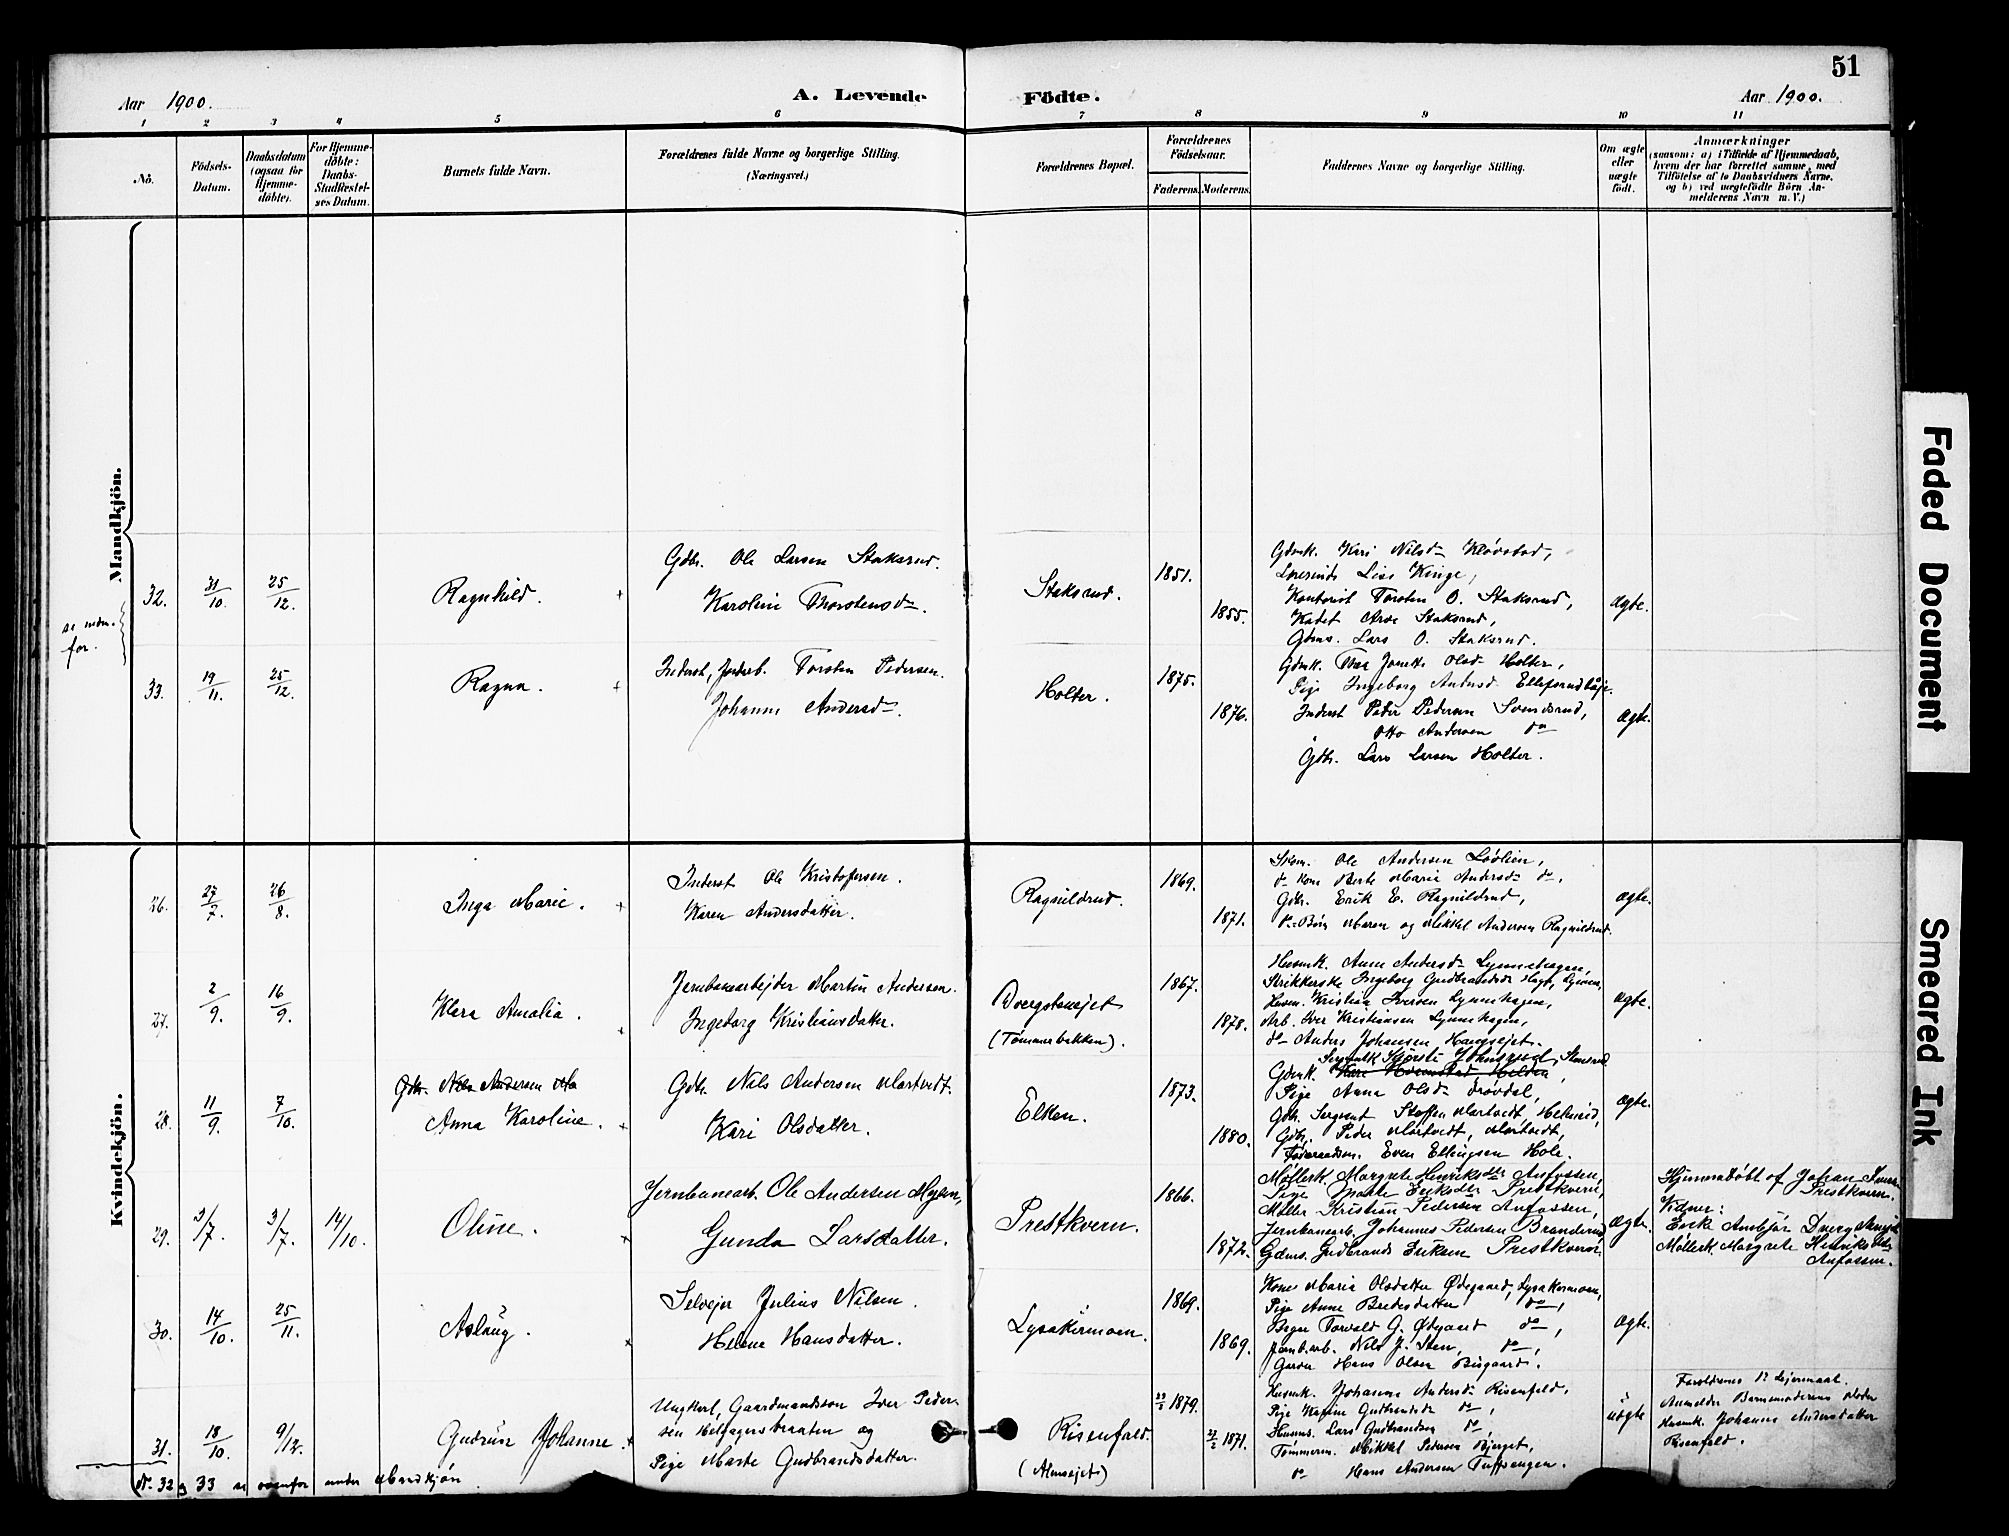 51
Aar 1900. A. Levende Födte. Aar 1900.
1 2 3 4 5 6 7 8 9 10 11
No.
Födsels-Datum.
Daabsdatum (ogsaa for Hjemme-döbte).
For Hjemme-döbte: Daabs-Stadfæstel-ses Datum.
Barnets fulde Navn.
Forældrenes fulde Navne og borgerlige Stilling.
(Næringsvei.)
Forældrenes Bopæl.
Forældrenes Födselsaar.
Faderens. Moderens.
Faddernes Navne og borgerlige Stilling.
Om ægte eller uægte födt.
Anmærkninger
(saasom: a) i Tilfælde af Hjemmedaab,
hvem der har forrettet samme, med
Tilföielse af to Daabsvidners Navne,
og b) ved uægtefödte Börn An-
melderens Navn m. V.)
Mandkjön.
se neden-
for.
32. 31/10. 25/12. Ragnhild.
Gdbr. Ole Larsen Staksrud.
Karoline Thorstensdr.
Staksrud. 1851. 1855.
Gdmk. Kari Nilsdr Kløvstad,
Lise Kinge,
Kontorist Torsten O. Staksrud,
Kadet Arne Staksrud,
Gdms. Lars O. Staksrud.
ægte.
33. 19/11. 25/12. Ragna.
Inderst, Jordarb. Torsten Pedersen.
Johanne Andersdr.
Holter. 1875. 1876.
Gdmk. Thea Janette Olsdr Holter,
Pige Ingeborg Andersdr
Inderst Peder Pedersen Svendsrud,
Otto Andersen do
Gdbr. Lars Larsen Holter.
ægte.
Kvindekjön.
26. 27/7. 26/8. Inga Marie.
Inderst Ole Kristofersen.
Karen Andersdatter.
Ragnildrud. 1869. 1871.
Skom. Ole Andersen Løvlien,
do kone Berte Marie Andersdr do,
Gdbr. Erik E. Ragnildrud,
do Børn Maren og Mikkel Andersen Ragnildrud.
ægte.
27. 2/9. 16/9. Klara Amalia.
Jernbanearbejder Martin Andersen.
Ingeborg Kristiansdatter.
Dvergstenejet
(Tømmerbakken).
1867. 1878.
Husmk. Anne Andersdr Lynnehagen,
Strikkerske Ingeborg Gudbrandsdr
Husm. Kristian Iversen Lynnehagen,
Arb. Iver Kristiansen Lynnehagen,
do Anders Johansen Haugsejet.
ægte.
28. 11/9. 7/10. Gdbr. Nils Andersen Ma
Anna Karoline.
Gdbr. Nils Andersen Martvedt.
Kari Olsdatter.
Elken. 1873. 1880.
Gdmk.
Pige Anna Olsdr
Gdbr. Sergeant Steffen Martvedt,
Gdbr. Peder Martvedt, Martvedt,
Føderaadsm. Even Ellingsen Hole.
ægte.
29. 3/7. 3/7. 14/10. Oline.
Jernbanearb. Ole Andersen Myhren,
Gunda Larsdatter.
Prestkvern. 1866. 1872.
Møllerk. Margrete Henriksdtr Anfossen,
Pige Marte Eriksdtr Prestkvern,
Møller Kristian Pedersen Anfossen,
Jernbanearb. Johannes Pedersen Branderud,
Gdms. Gudbrand Eriksen Prestkvern
ægte.
Hjemmedøbt af Johan
Prestkvern.
Vidner:
Møllerk. Margrete Henriksdtr
Anfossen.
30. 14/10. 25/11. Aslaug.
Selvejer Julius Nilsen.
Helene Hansdatter.
Lysakermoen. 1869. 1869.
Kone Maria Olsdatter Ødegaard, Lysakermoen,
Pige Anne Bredesdatter do,
Torvald G. Ødegaard do,
Jernb.arb. Nils J. Sten, do,
Hans Olsen Bisgaard.
ægte.
31. 18/10. 9/12. Gudrun Johanne.
Ungkarl, Gaardmandssøn Iver Peder-
sen Helgagersbraaten og
Pige Marte Gudbrandsdatter.
Risenfald.
(Almsejet)
1879. 1871.
Husmk. Johanne Andersdr Risenfald,
Pige Karine Gudbrandsdr do,
Husms. Lars Gudbrandsen do,
Tømmerm. Mikkel Pedersen Bjerget,
do Hans Andersen Tuffsengen.
uægte
Forældrenes 1ste Lejermaal.
Anmelder Barnemoderens Moder
Husmk. Johanne Andersdatter
Risenfald.
Nr. 32 og 33 se ovenfor under Mandkjøn
Faded Document
Smeared Ink